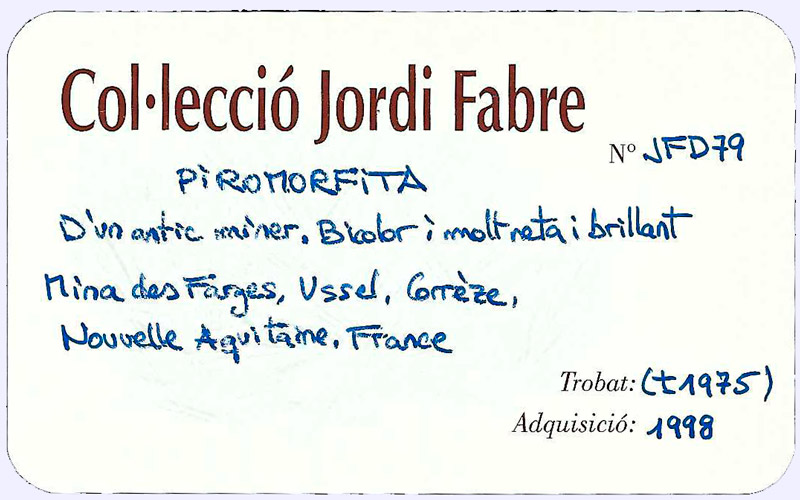 Col·lecció Jordi Fabre
Nº JFD79
PiROMORFiTA
D'un antic miner. Bicolor i molt neta i brillant
Mina des Farges, Ussel, Corrèze,
Nouvelle Aquitaine. France
Trobat: (±1975)
Adquisició: 1998